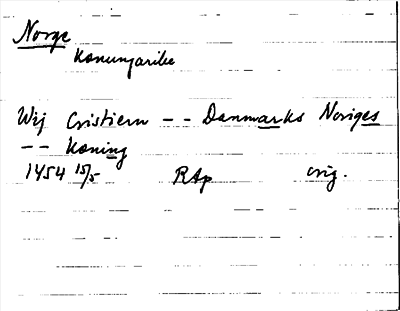 Norge
Konungarike
Wij Cristiern -- Danmarks Noriges
-- Koning
1454 15/5 RAp orig.